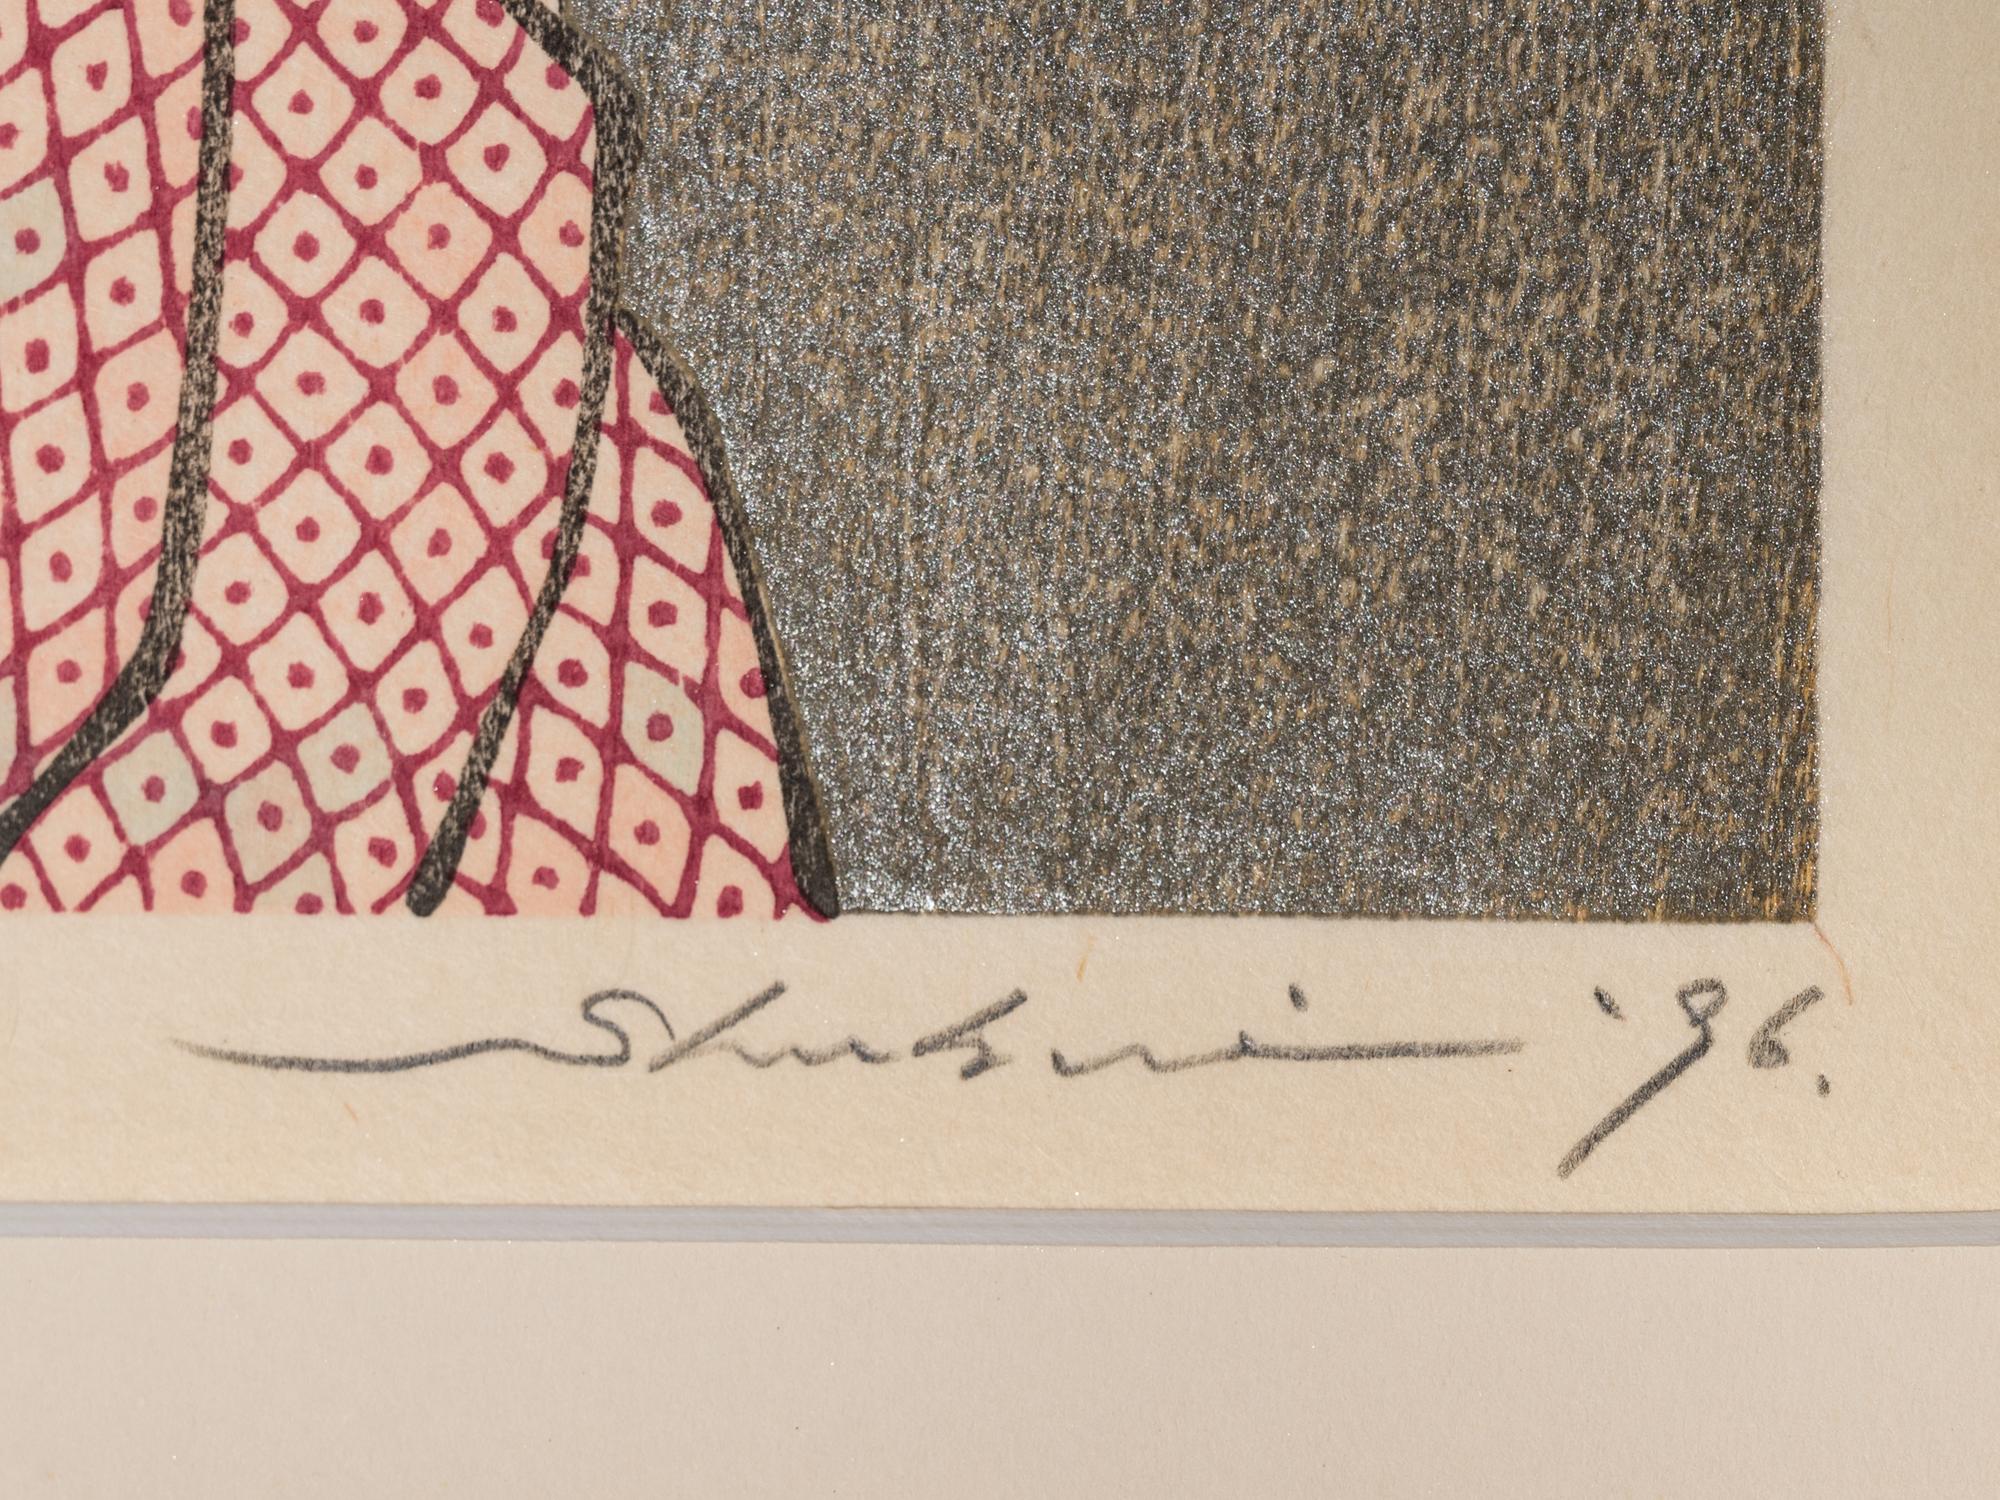 Shuzui '96.